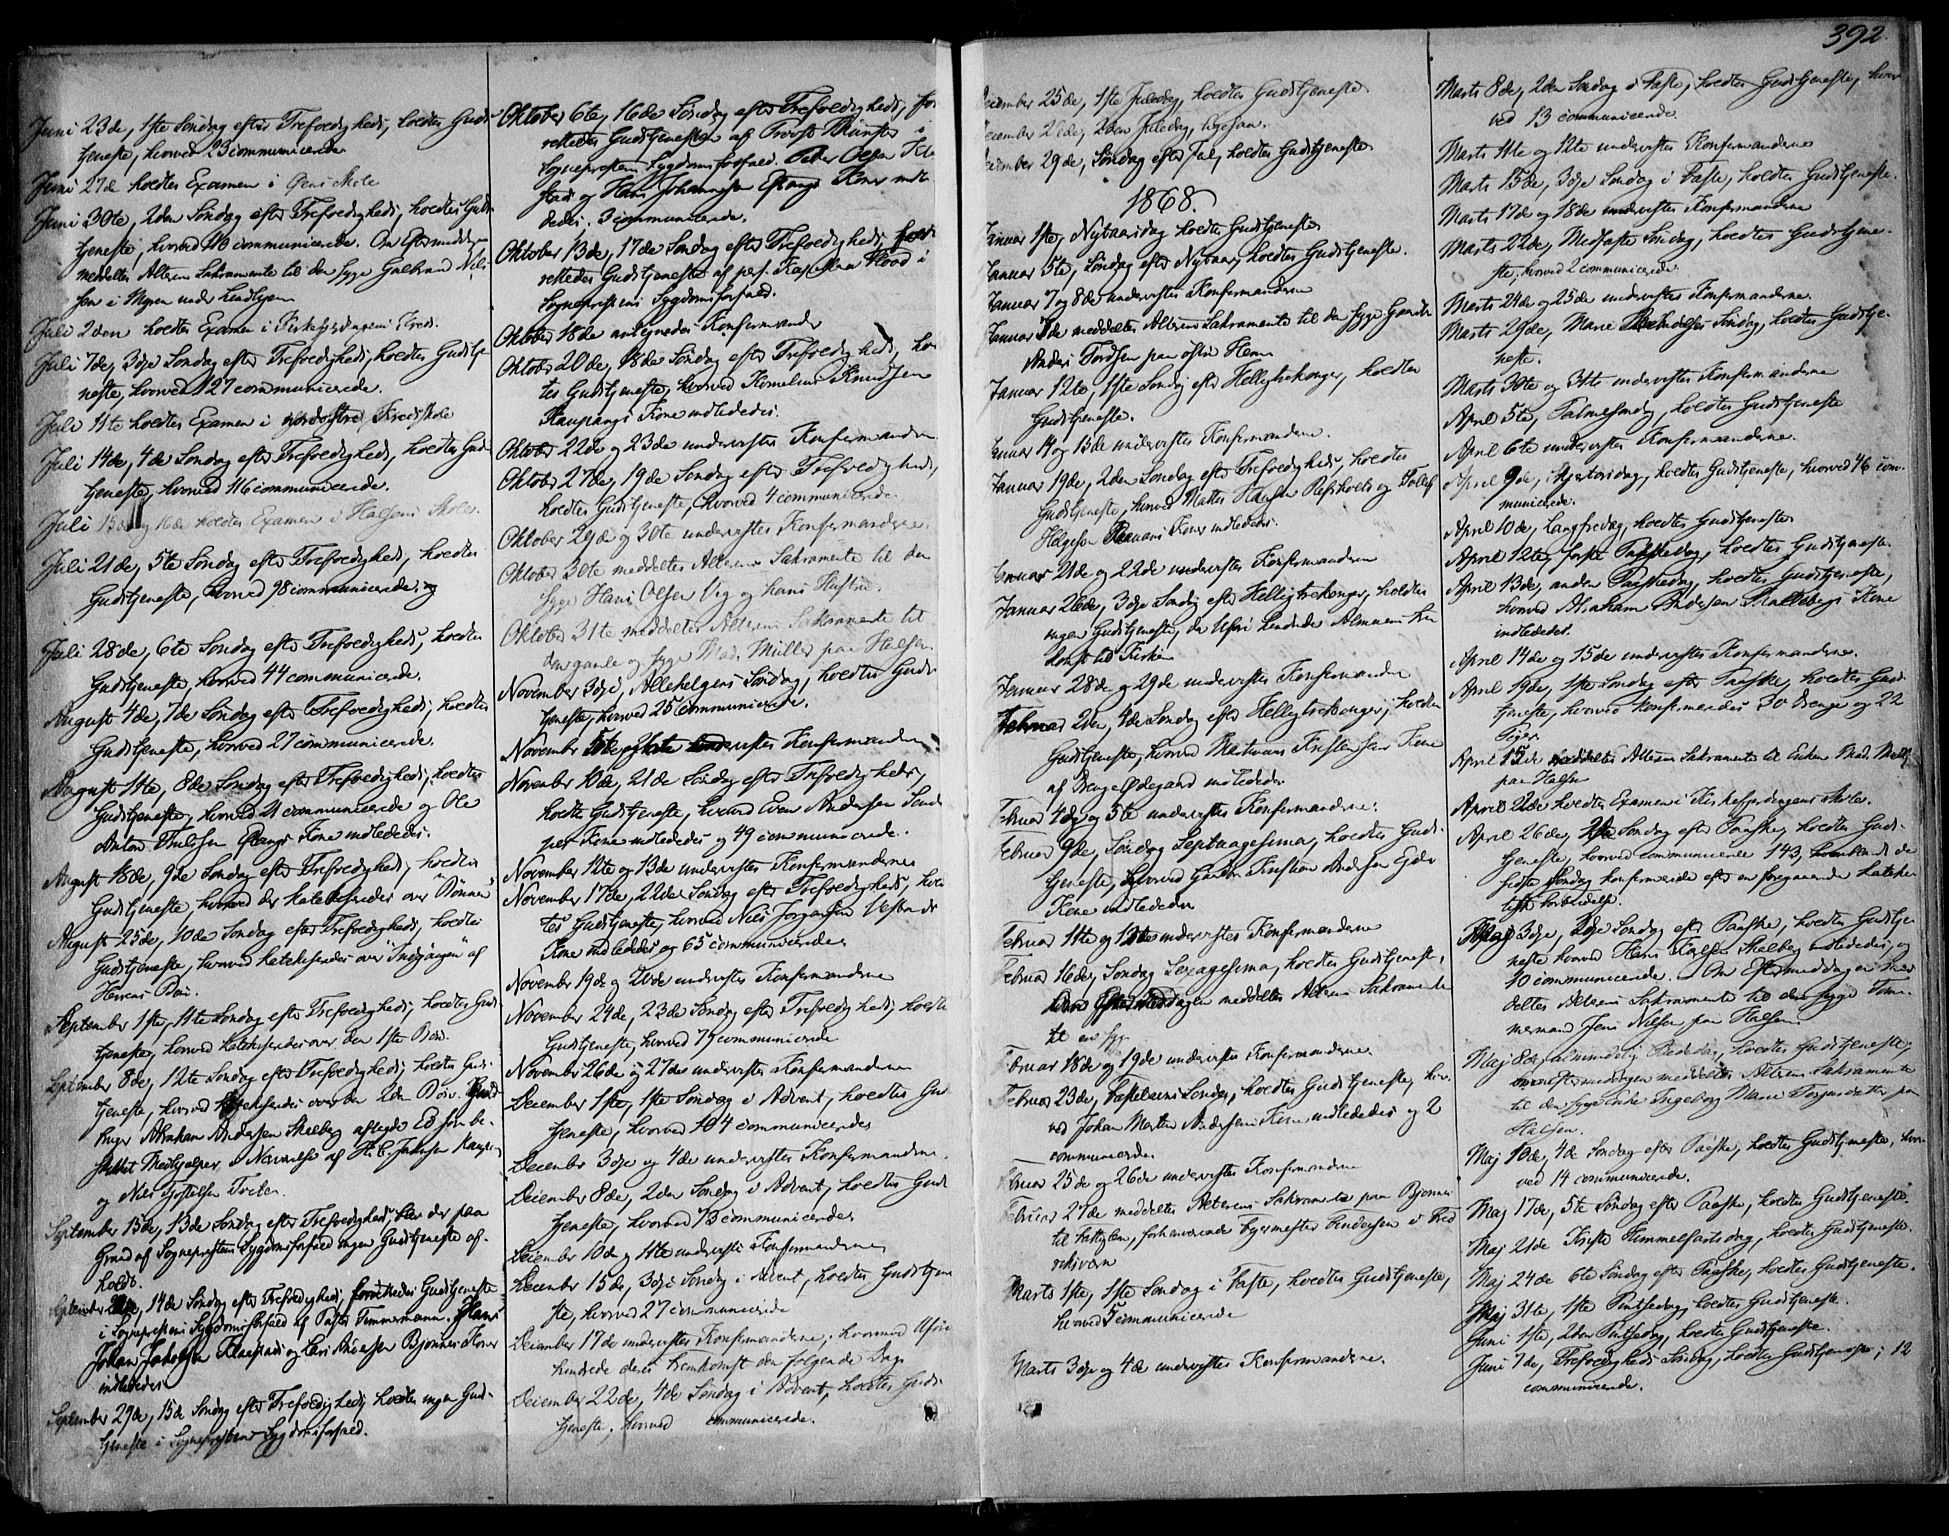 392.
Juni 23de, 1ste Søndag efter Trefoldighed, holdtes Guds-
tjeneste, hvorved 23 communicerede
Juni 27de holdtes Examen i Skole
Juni 30te, 2den Søndag efter Trefoldighed, holdtes Guds-
tjeneste, hvorved 110 communicerede. Om Eftermiddagen
meddeltes Alterens Sakramente til den syge Gulbrand Niel-
sen i Myren under
Juli 2den holdtes Examen i Kirkesogningens Kreds.
Juli 7de, 3dje Søndag efter Trefoldighed, holdtes Gudstje-
neste, hvorved 127 communicerede.
Juli 11te holdtes Examen i Kredsskole
Juli 14de, 4de Søndag efter Trefoldighed, holdtes Guds-
tjeneste, hvorved 116 communicerede.
Juli 15de og 16de holdtes Examen i Halsens Skole.
Juli 21de, 5te Søndag efter Trefoldighed, holdtes
Gudstjeneste, hvorved 98 communicerede. og
Juli 28de, 6te Søndag efter Trefoldighed, holdtes
Gudstjeneste, hvorved 44 communicerede.
August 4de, 7de Søndag efter Trefoldighed, holdtes
Gudstjeneste, hvorved 27 communicerede.
August 11te, 8de Søndag efter Trefoldighed, holdtes
Gudstjeneste, hvorved 21 communicerede og Ole
Anton Kone indlededes.
August 18de, 9de Søndag efter Trefoldighed, holdtes
Gudstjeneste, hvorved der katekiseredes over "Bønnen"
August 25de, 10de Søndag efter Trefoldighed, holdtes
Gudstjeneste, hvorved katekiseredes over "Indgangen" af
Herrens Bøn.
September 1ste, 11te Søndag efter Trefoldighed, holdtes Guds-
tjeneste, hvorved katekiseredes over den 1ste Bøn.
September 8de, 12te Søndag efter Trefoldighed, holdtes Guds-
tjeneste, hvorved katekiseredes over den 2den Bøn. Gaard-
bruger Abraham Andersen Skalberg aflagde Ed som be-
skikket Medhjælper, i Nærværelse af H. C. Jakobsen
og Niels Kjostelsen Tveten.
September 15de, 13de Søndag efter Trefoldighed, blev der paa
Grund af Sognepræstens Sygdomsforfald ingen Gudstjeneste af-
holdt.
September 22de, 14de Søndag efter Trefoldighed, forrettedes Gudstjeneste
i Sognepræstens Sygdomsforfald af Pastor Timmermann. Hans
Johan Jakobsen og Lars Andersen Bjønnes Koner
indlededes
September 29de, 15de Søndag efter Trefoldighed, holdtes ingen Guds-
tjeneste i Sognepræstens Sygdomsforfald.
Oktober 6te, 16de Søndag efter Trefoldighed, for-
rettedes Gudstjenesten af Provst Münster i
Sognepræstens Sygdomsforfald. Peder Olsen
stad og Hans Johannesen Koner indle-
dedes. 3 communicerede.
Oktober 13de, 17de Søndag efter Trefoldighed, for-
rettedes Gudstjeneste af pers. Kapellan Flood i
Sognepræstens Sygdomsforfald.
Oktober 18de antegnedes Konfirmander
Oktober 20de, 18de Søndag efter Trefoldighed, hold-
tes Gudstjeneste, hvorved Kornelius Knudsen
Kaupangs Kone indlededes.
Oktober 22de og 23de undervistes Konfirmanderne
Oktober 27de, 19de Søndag efter Trefoldighed,
holdtes Gudstjeneste, hvorved 4 communicerede.
Oktober 29de og 30te undervistes Konfirmanderne.
Oktober 30te meddeltes Alterens Sakramente til den
syge Hans Olsen Vig og hans Hustru.
Oktober 31te meddeltes Alterens Sakramente til
den gamle og syge Mad. Müller paa Halsen.
November 3dje, Allehelgens Søndag, holdtes Guds-
tjeneste, hvorved 25 communicerede.
November 5te og 6te undervistes Konfirmanderne
November 10de, 21de Søndag efter Trefoldighed,
holdtes Gudstjeneste, hvorved Even Andersen
Kone indlededes og 49 communicerede.
November 12te og 13de undervistes Konfirmanderne
November 17de, 22de Søndag efter Trefoldighed, hold-
tes Gudstjeneste, hvorved Niels Jørgensen
Kone indlededes og 65 communicerede
November 19de og 20de undervistes Konfirmanderne
November 24de, 23de Søndag efter Trefoldighed, holdtes
Gudstjeneste, hvorved 79 communicerede
November 26de og 27de undervistes Konfirmanderne
December 1ste, 1ste Søndag i Advent, holdtes Gud-
tjeneste, hvorved 104 communicerede
December 3dje og 4de undervistes Konfirmanderne.
December 8de, 2den Søndag i Advent, holdtes Gud-
tjeneste, hvorved 73 communicerede
December 10de og 11te undervistes Konfirmanderne
December 15de, 3dje Søndag i Advent, holdtes Gudstjene-
ste, hvorved 27 communicerede
December 17de undervistes Konfirmanderne; hvorimod Uføre
hindrede deres Fremkomst den følgende Dag.
December 22de, 4de Søndag i Advent, holdtes Guds-
tjeneste, hvorved communicerede.
December 25de, 1ste Juledag, holdtes Gudstjeneste
December 26de, 2den Juledag, ligesaa.
December 29de, Søndag efter Jul, holdtes Gudstjeneste
1868.
Januar 1ste, Nytaarsdag holdtes Gudstjeneste
Januar 5te, Søndag efter Nytaar, holdtes Gudstjeneste.
Januar 7 og 8de undervistes Konfirmanderne
Januar meddeltes Alterens Sakramente til den syge Gamle
Anders Tordsen paa østre Hem
Januar 12te, 1ste Søndag efter Helligtrekonger, holdtes
Gudstjeneste.
Januar 14 og 15de undervistes Konfirmanderne.
Januar 19de, 2den Søndag efter Trefoldighed, holdtes
Gudstjeneste, hvorved Mattis Hansen Refsholts og Tollef
Helgesen Koner indlededes.
Januar 21de og 22de undervistes Konfirmanderne
Januar 26de, 3dje Søndag efter Helligtrekonger, holdtes
ingen Gudstjeneste, da Uføre hindrede Almuens An-
komst til Kirken
Januar 28de og 29de undervistes Konfirmanderne
Februar 2den, 4de Søndag efter Helligtrekonger, holdtes
Gudstjeneste, hvorved Martinus Kristensens Kone
af Berge Ødegaard indlededes
Februar 4de og 5te undervistes Konfirmanderne.
Februar 9de, Søndag Septuagesima, holdtes Guds-
tjeneste, hvorved Kristian Andersen
Kone indlededes
Februar 11te og 12te undervistes Konfirmanderne
Februar 16de, Søndag Sexagesima, holdtes Gudstjeneste,
Om Eftermiddagen meddeltes Alterens Sakramente
til en syg
Februar 18de og 19de undervistes Konfirmanderne.
Februar 23de, Fastelavns Søndag, holdtes Gudstjeneste, hvor-
ved Johan Martin Andersens Kone indlededes og 2
communicerede.
Februar 25de og 26de undervistes Konfirmanderne
Februar 27de meddeltes Alterens Sakramente paa Bjønnes
til Fattiglem, forhenværende Byermester Knudsen i Fred-
riksværn
Marts 1ste, 1ste Søndag i Faste, holdtes Gudstjeneste,
hvorved 5 communicerede
Marts 3dje og 4de undervistes Konfirmanderne.
Marts 8de, 2den Søndag i Faste, holdtes Gudstjeneste, hvor-
ved 13 communicerede.
Marts 11te og 12te undervistes Konfirmanderne
Marts 15de, 3dje Søndag i Faste, holdtes Gudstjeneste.
Marts 17de og 18de undervistes Konfirmanderne
Marts 22de, Midfaste Søndag, holdtes Gudstjene-
ste, hvorved 2 communicerede.
Marts 24de og 25de undervistes Konfirmanderne.
Marts 29de, Marie Bebudelses Søndag, holdtes Gudstje-
neste.
Marts 30te og 31te undervistes Konfirmanderne
April 5te, Palmesøndag, holdtes Gudstjeneste
April 6te undervistes Konfirmanderne.
April 9de, Skjærtorsdag, holdtes Gudstjeneste, hvorved 46 com-
municerede.
April 10de, Langfredag, holdtes Gudstjeneste
April 12te, første Paaskedag, holdtes Gudstjeneste.
April 13de, anden Paaskedag, holdtes Gudstjeneste,
hvorved Abraham Andersen Skallebergs Kone
indlededes.
April 14de og 15de undervistes Konfirmanderne.
April 19de, 1ste Søndag efter Paaske, holdtes Guds-
tjeneste, hvorved konfirmeredes 30 Drenge og 22
Piger.
April 15de meddeltes Alterens Sakramente til Enken Mad. Møller
paa Halsen
April 22de holdtes Examen i Kirkesogningens Skole.
April 26de, 2den Søndag efter Paaske, holdtes Guds-
tjeneste, hvorved communicerede 143, hvoriblandt de
sidste Søndag konfirmerede efter en foregaaende kateke-
tisk Forberedelse.
Maj 3dje, 3dje Søndag efter Paaske, holdtes Gudstje-
neste hvorved Hans Karlsen Skalberg indlededes, og
10 communicerede. Om Eftermiddagen med-
deltes Alterens Sakramente til den syge Tøm-
mermand Jens Nilsen paa Halsen.
Maj 8de, almindelig Bededag, holdtes Gudstjeneste;
om Eftermiddagen meddeltes Alterens Sakramente
til den syge Enke Ingeborg Marie Torgersdatter paa
Halsen.
Maj 10de, 4de Søndag efter Paaske, holdtes Gudstjeneste, hvor-
ved 14 communicerede.
Maj 17de, 5te Søndag efter Paaske, holdtes Gudstjeneste.
Maj 21de Kristi Himmelfartsdag, holdtes Gudstjeneste.
Maj 24de 6te Søndag efter Paaske, holdtes Gudstjeneste.
Maj 31te, 1ste Pintsedag, holdtes Gudstjeneste.
Juni 1ste, 2den Pintsedag, holdtes Gudstjeneste.
Juni 7de, Trefoldigheds Søndag, holdtes Gudstjeneste; 12
communicerede.